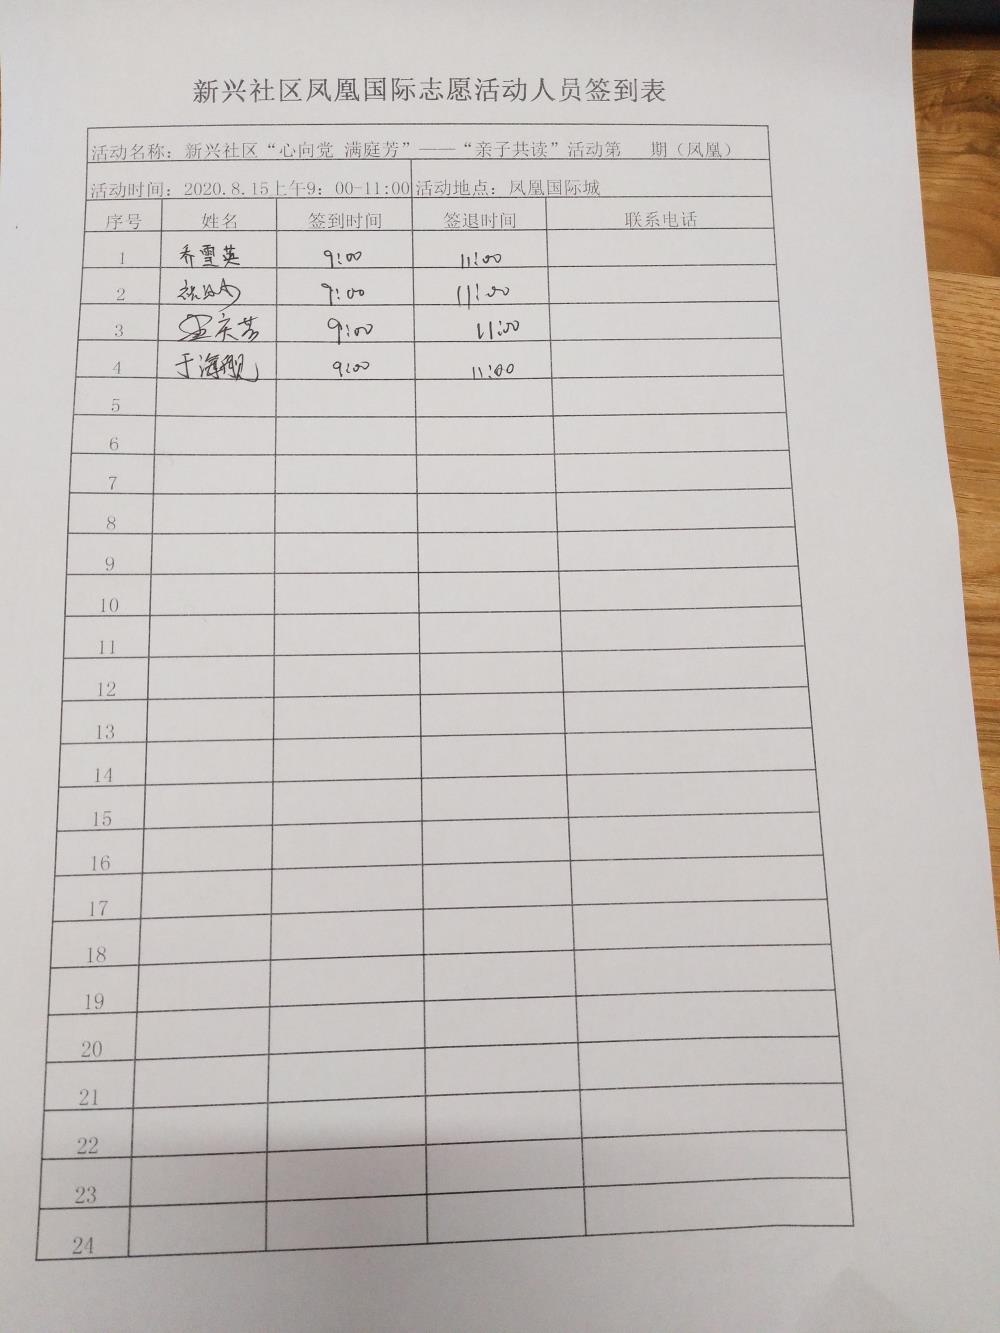 新兴社区凤凰国际志愿活动人员签到表
活动名称：新兴社区“心向党 满庭芳”——“亲子共读”活动第 期（凤凰）
活动时间：2020.8.15上午9：00-11:00 活动地点：凤凰国际城
序号 姓名 签到时间 签退时间 联系电话
1 乔雪英 9:00 11:00
2 9:00 11:00
3 孟庆芳 9:00 11:00
4 于海舰 9:00 11:00
5
6
7
8
9
10
11
12
13
14
15
16
17
18
19
20
21
22
23
24